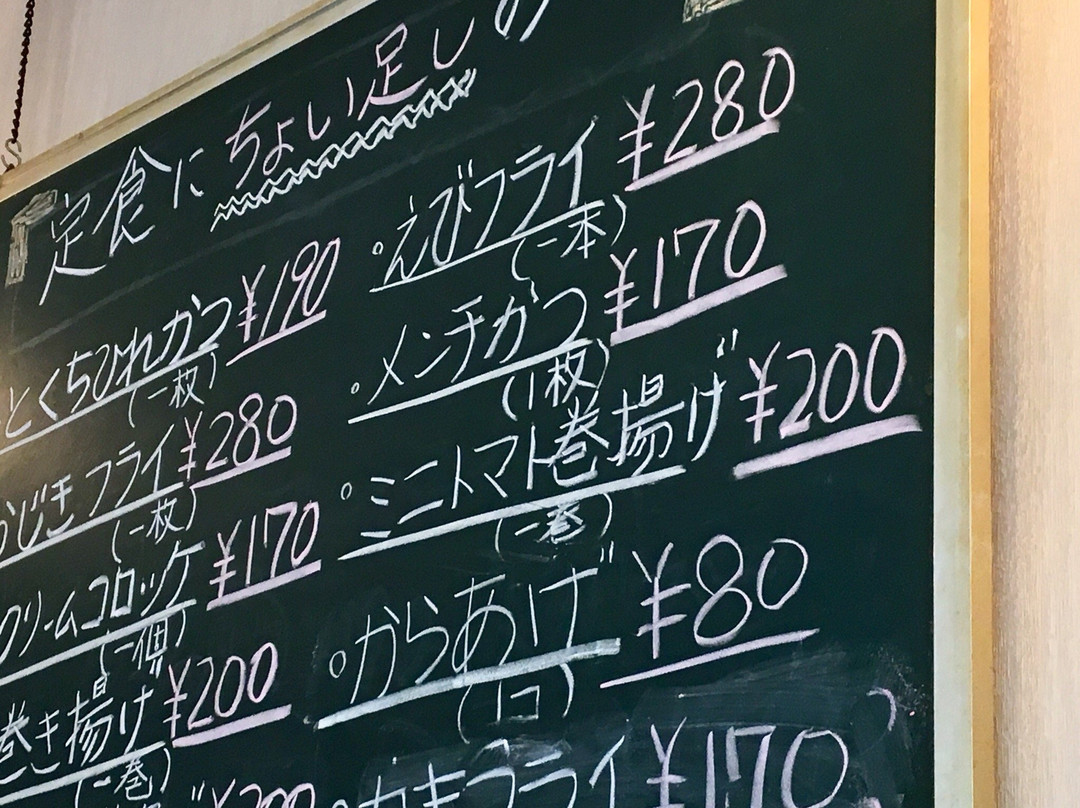 定食にちょい足しの
とくちひれかつ ¥190
(一枚)
かじきフライ ¥280
(一枚)
クリームコロッケ ¥170
(一個)
巻き揚げ ¥200
(一巻)
。えびフライ ¥280
(一本)
。メンチかつ ¥170
(1枚)
。ミニトマト巻揚げ ¥200
(一巻)
。からあげ ¥80
(1コ)
。カキフライ ¥170